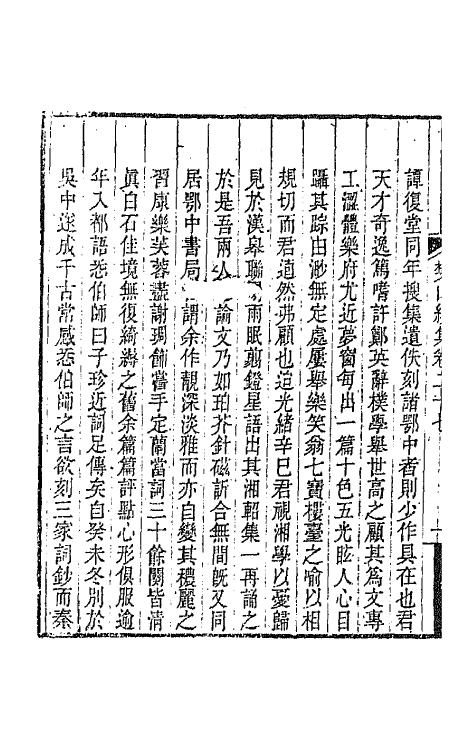 譚復堂同年搜集遺佚刻諸鄂中者則少作具在也君
天才奇逸篤嗜許鄭英辭樸學舉世高之顧其爲文專
工溫體樂府尤近夢窗每出一篇十色五光眩人心目
躡其踪由渺無定處屢舉樂笑翁七寶樓臺之喻以相
規切而君逌然弗顧也迨光緒辛巳君視湘學以憂歸
見於漢皋聯 雨眠翦鐙星語出其湘軺集一再誦之
於是吾兩 論文乃如珀芥針磁訢合無間旣又同
居鄂中書局 謂余作靚深淡雅而亦自變其穠麗之
習康樂芙蓉盡謝琱飾嘗手定蘭當詞三十餘闋皆淸
眞白石佳境無復綺縟之舊余篇篇評點心形俱服逾
年入都語悉伯師曰子珍近詞足傳矣自癸未冬別於
吳中遂成千古常感悉伯師之言欲刻三家詞鈔而秦